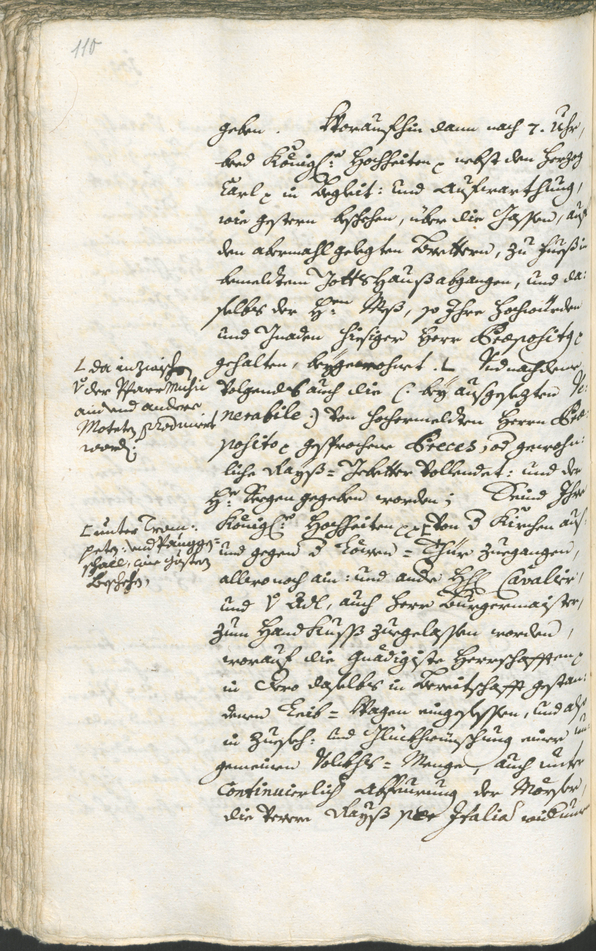 110
geben. Woraufhin dann nach 7. Uhr,
beed Königl: Hochheiten nebst den Herzog
Carl in Begleit: und Aufwarthung,
wie gestern beschehen, über die Gassen, auf
den abermahl gelegten Brettern, zu Fueß in
bemeldtem Gottshauß abgangen, und da:
selbs der H: Meß, so Ihro Hochwürden
und Gnaden hiesiger Herr Praepositus
gehalten, beygewohnet. Und nachdeme
volgends auch die (: bey ausgesetzten Ve:
nerabile :) von hochermeldten Herrn Prae:
posito gesprochene Preces, und gewohn:
liche Rayß=Gebetter vollendet: und der
H: Seegen gegeben worden; Seind Ihro
Königl: Hochheiten von d Kirchen auß:
und gegen d Thür zuegangen,
allwo noch ain: und andre Cavalier,
und v Adl, auch Herr Burgermaister,
zum Handkuss zuegelassen worden,
worauf die Gnädigiste Herrschafften
in daselbs in Bereitschafft gestan:
denen Leib=Wagen eingesessen, und also
in Zueseh: und Glückhwünschung einer un:
gemainen Volckhs=Menge, auch unter
continuierlich Abfeurung der Mörser,
die verere Rayß per Italia widerumb
da inzwischen
v der Pfarr Music
ain und andere
Moteten produciert
worden;
unter Trom:
peten: und Paugge:
schall, wie gestern
beschehen,